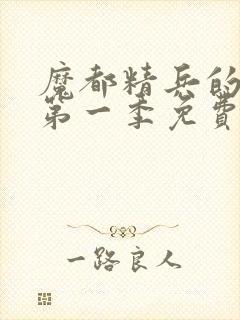 魔都精兵的
第一季免費
一路良人